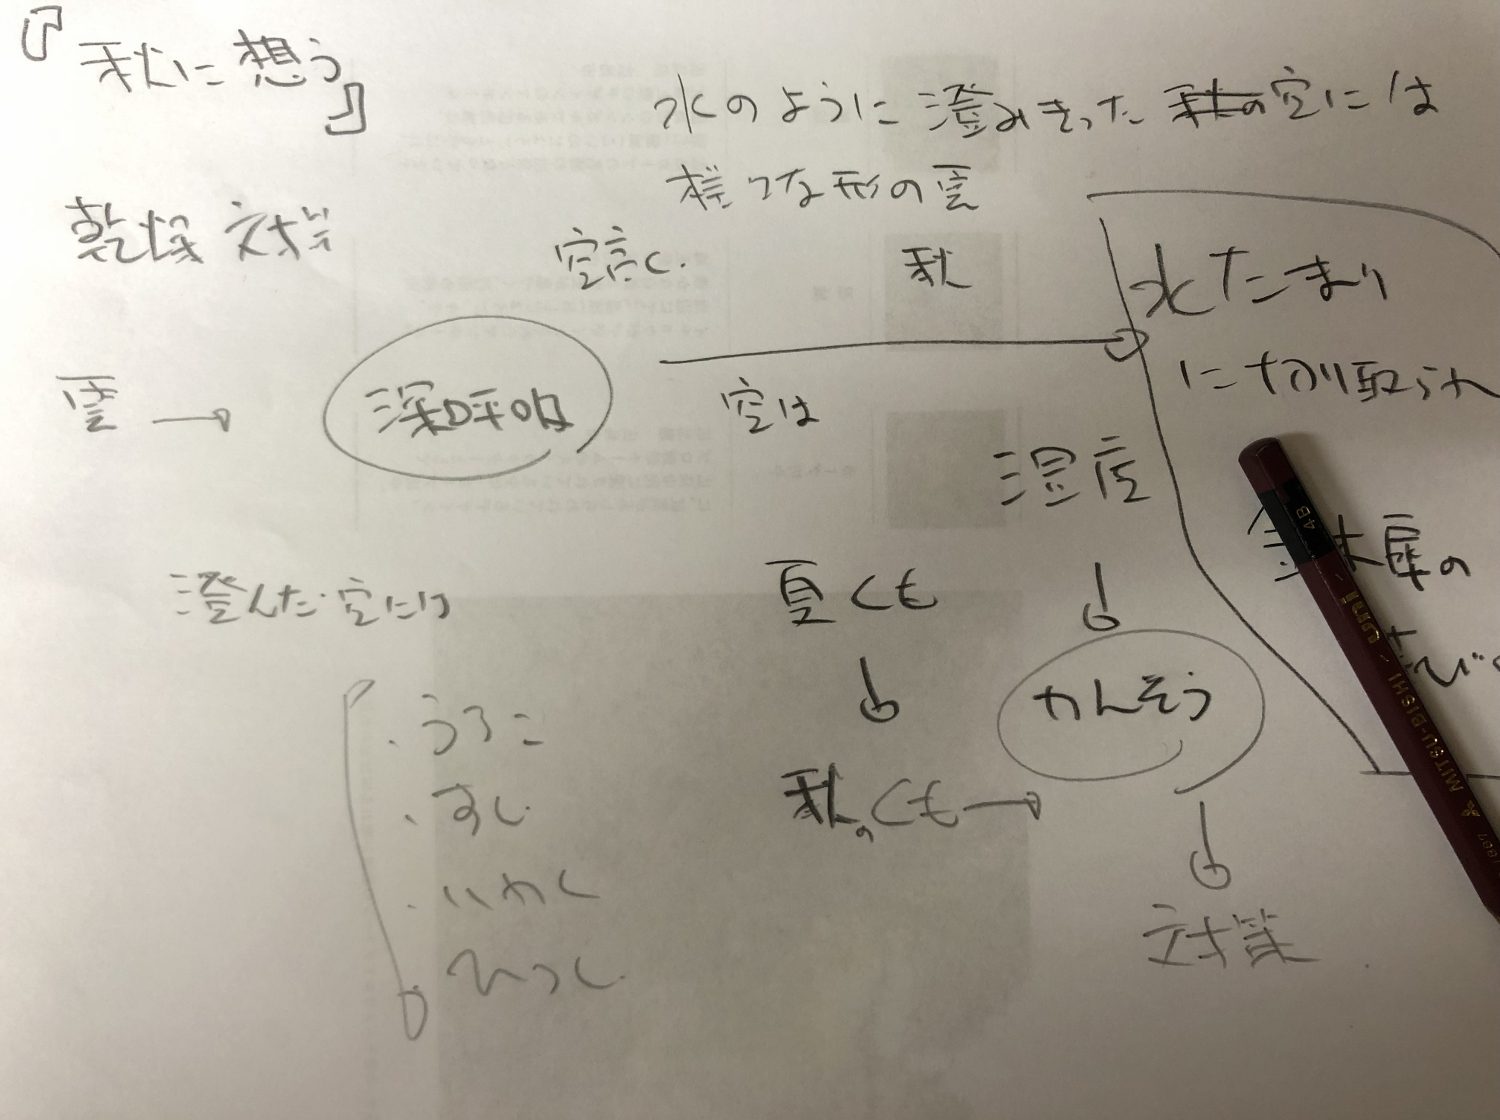 『秋に想う』
水のように澄みきった秋の空には
様々な形の雲
乾燥対策
空高く
秋
水たまり
に切り取られ
雲→
深呼吸
空は
湿度
4B
uni
MITSU-BISHI
澄んだ空には
夏くも
かんそう
・うろこ
・すじ
・いわし
・ひつじ
秋のくも→
対策